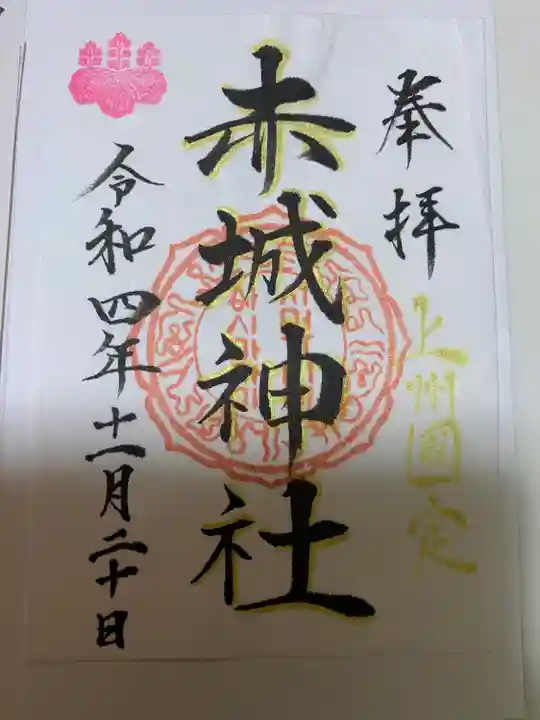 奉拝
上州國定
赤城神社
令和四年十一月二十日